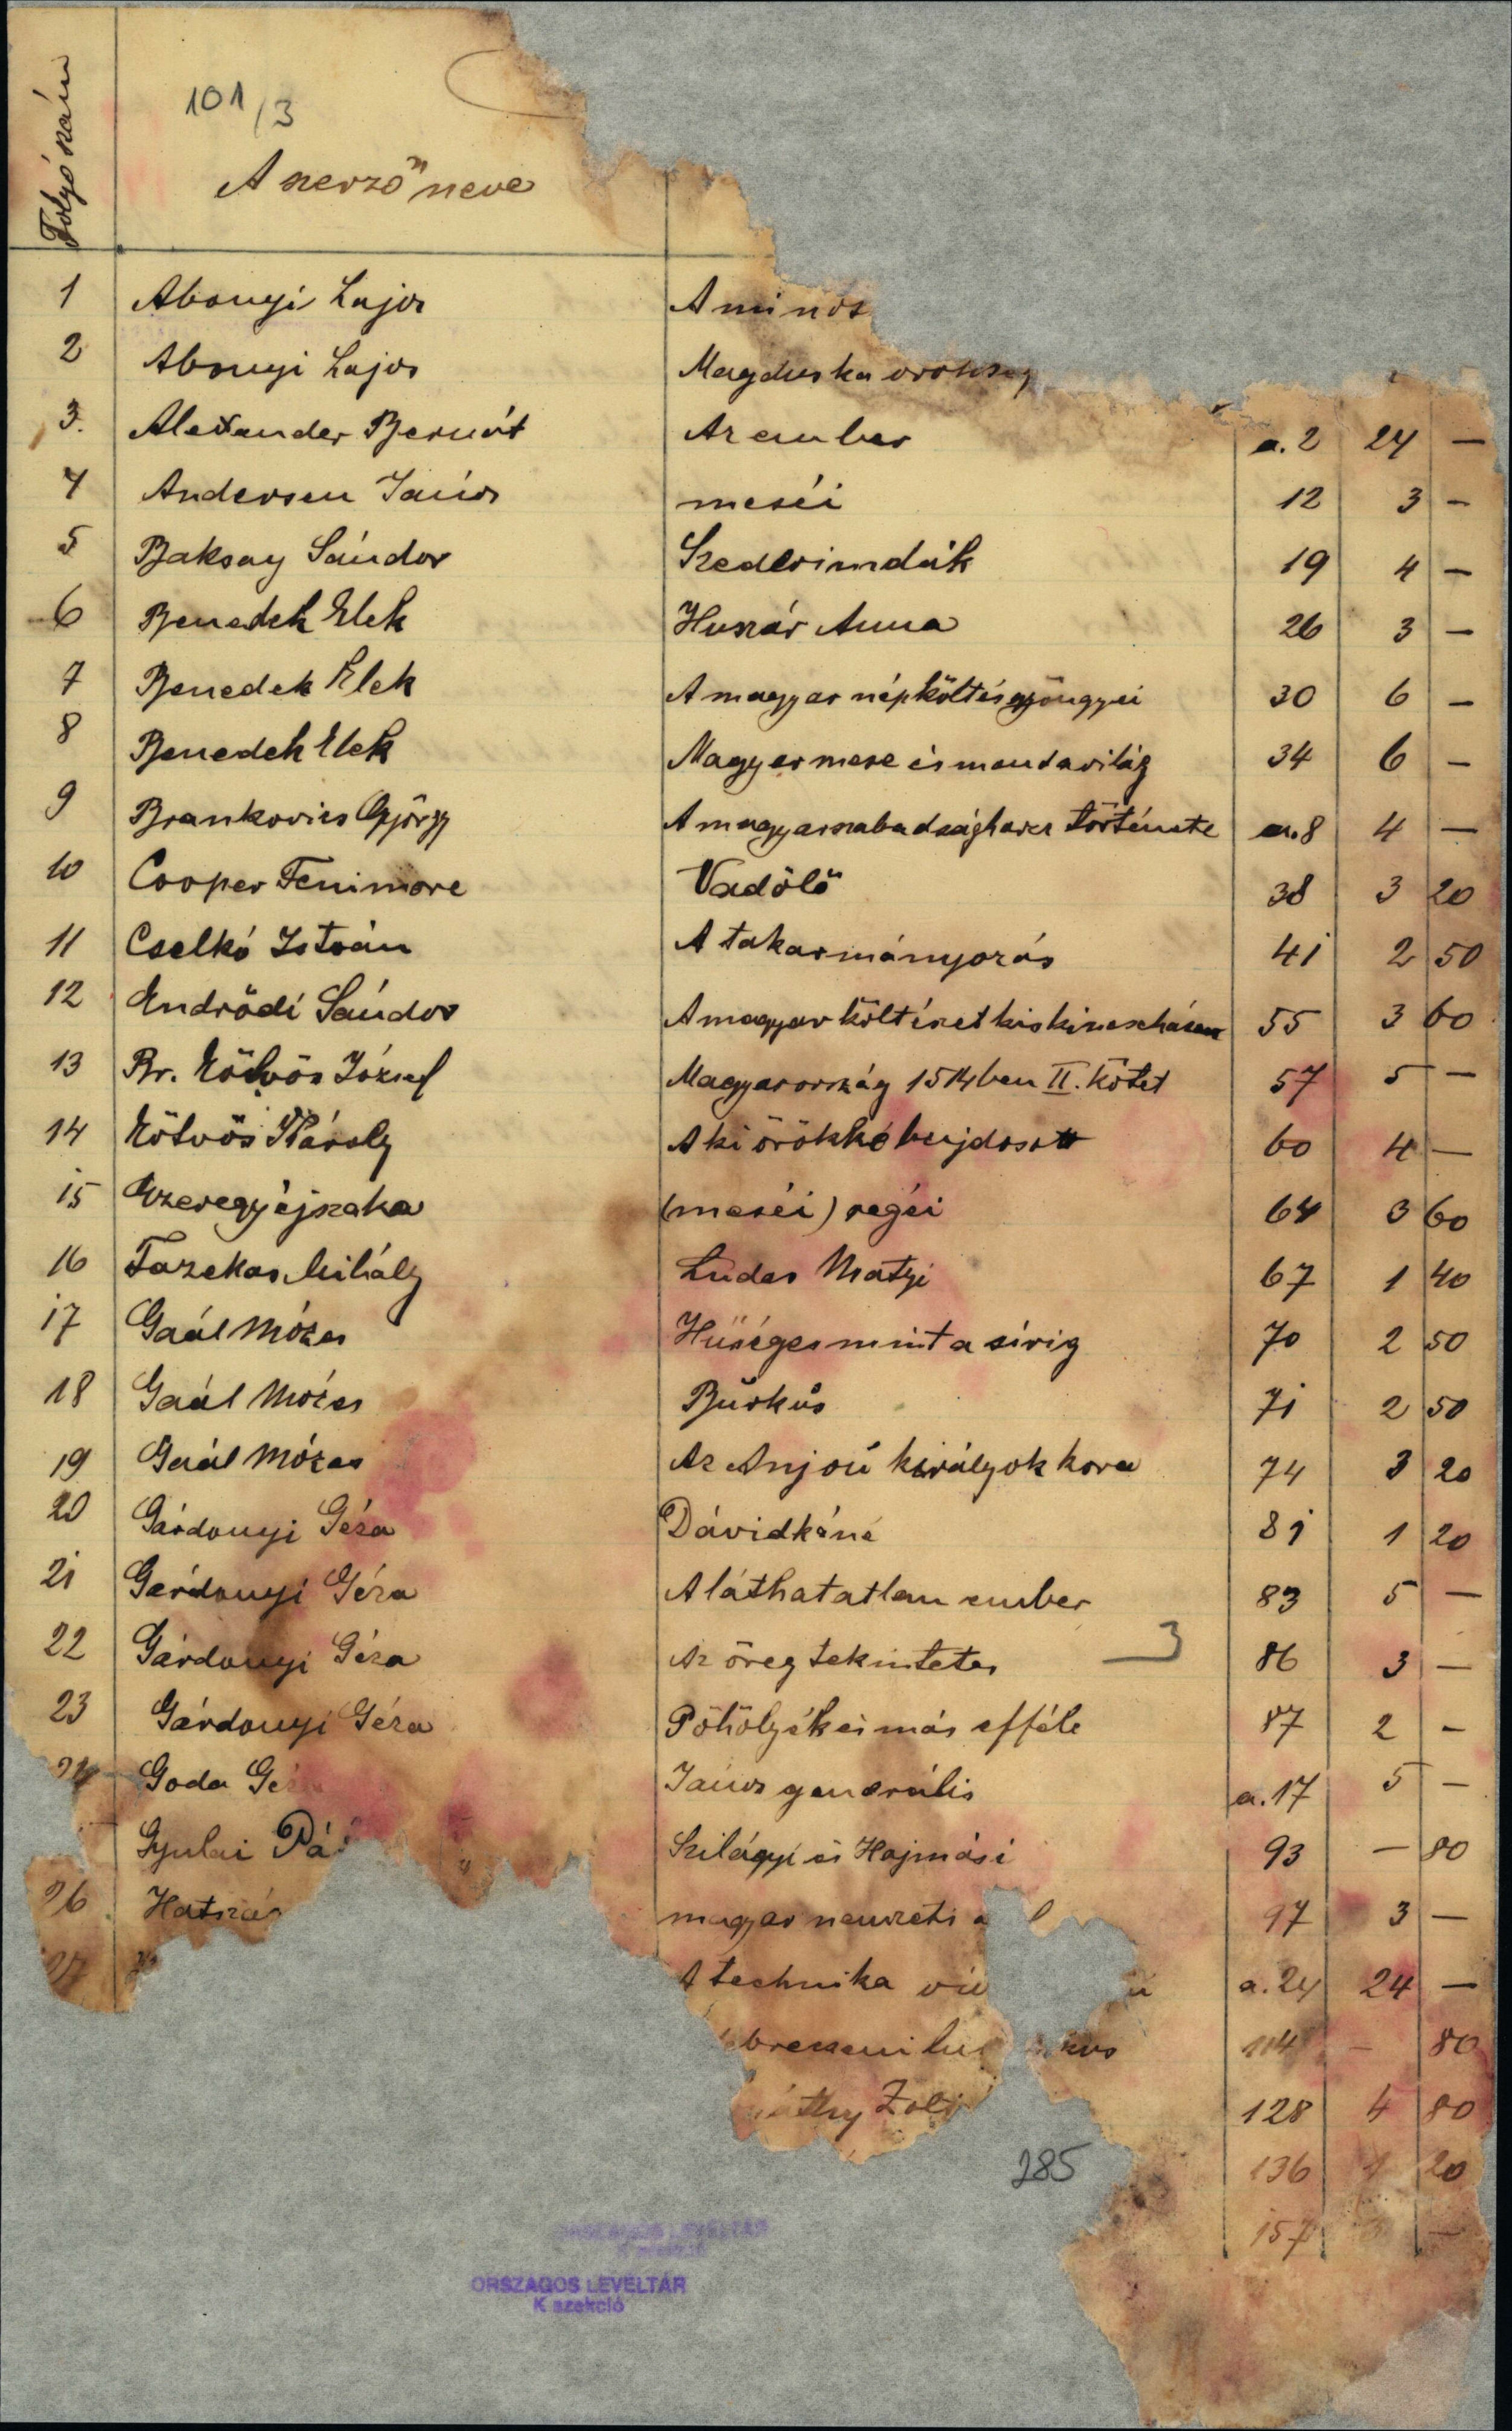 101/3
Folyó szám
A szerző neve
1 Abonyi Lajos A mi nós
2 Abonyi Lajos Magduska örökség
3. Alexander Bernát Az ember a.2 24 —
4 Andersen János meséi 12 3 —
5 Baksay Sándor Szederindák 19 4 —
6 Benedek Elek Huszár Anna 26 3 —
7 Benedek Elek A magyar népköltés gyöngyei 30 6 —
8 Benedek Elek Magyar mese és mondavilág 34 6 —
9 Brankovics György A magyar szabadságharcz története a.8 4 —
10 Cooper Fenimore Vadölő 38 3 20
11 Cselkó István A takarmányozás 41 2 50
12 Endrődi Sándor A magyar költészet kis kincsesháza 55 3 60
13 Br. Eötvös József Magyarország 1514ben II. kötet 57 5 —
14 Eötvös Károly A ki örökké bujdosott 60 4 —
15 Ezeregyéjszaka (meséi) regéi 64 3 60
16 Fazekas Mihály Ludas Matyi 67 1 40
17 Gaál Mózes Hűséges mint a sírig 70 2 50
18 Gaál Mózes Burkus 71 2 50
19 Gaál Mózes Az Anjou királyok kora 74 3 20
20 Gárdonyi Géza Dávidkáné 81 1 20
21 Gárdonyi Géza A láthatatlan ember 83 5 —
22 Gárdonyi Géza Az öreg tekintetes 3 86 3 —
23 Gárdonyi Géza Pöhölyék és más efféle 87 2 —
24 Goda Gé János generális a.17 5 —
Gyulai Pá Szilágyi és Hajmási 93 — 80
26 Hatszás magyar nemzeti 97 3 —
27 A technika vív a.24 24 —
ebreczeni lu kus 114 — 80
áthy Zolt 128 4 80
136 1 20
157 —
285
ORSZÁGOS LEVÉLTÁR
K szekció
ORSZÁGOS LEVÉLTÁR
K szekció